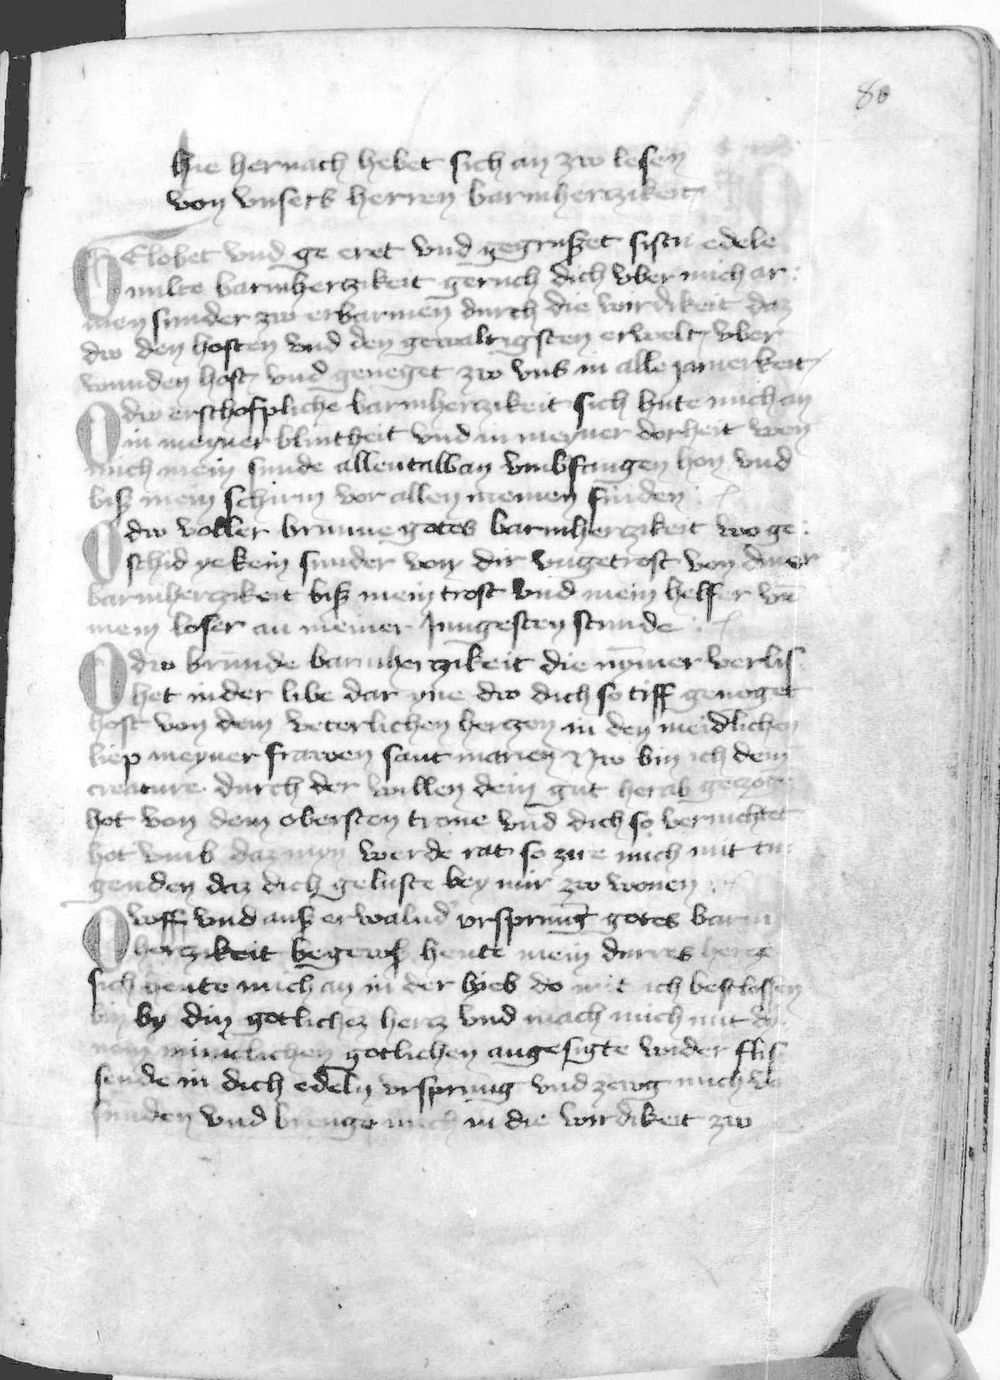 80
hie hernach hebet sich an zw lesen
von vnsers herren barmherczikeit
GElobet vnd ge eret vnd gegrusset sistu edele
milte barmherczikeit geruch dich vber mich ar:
men sunder zw erbarmen durch die wirdikeit daz
dw den hosten vnd den gewaltigsten erwelt vber
wunden host vnd geneget zw vns in alle jamerkeit
O dw erschofpliche barmherczikeit sich hute mich an
in meyner blintheit vnd in meyner dorheit wen
mich mein sunde allentalban vmbfangen hon vnd
biss mein schirm vor allen meinen finden
O dw voller brunne gotes barmherczikeit wo ge:
schid ye kein sunder von dir vngetrost von diner
barmherczikeit biss mein trost vnd mein helfer vn̄
mein loser an meiner Jungesten stunde
O dw brūnde barmherczikeit die nymer verlis:
het in der libe dar yne dw dich so tiff geneget
host von dem veterlichen herczen in den meidlichen
liep meyner frawen sant marien Nw bin ich dein
creature durch der willen dein gut herab geczoge
hot von dem obersten trone vnd dich so vernichtet
hot vmb daz mon werde rat so zire mich mit tu:
genden daz dich geluste bey mir zw wonen
O wff vnd auss erwalnd vrsprung gotes barm
herczikeit begewss heute mein durres hercze
sich heute mich an in der lieb do mit ich beslossen
bin by din gotliches hercz vnd mach mich mit di
nem minnelichen gotlichen angesigte wider flis
sende in dich edeln vrsprung vnd zewg mich vo
sunden vnd brenge mich in die wirdikeit zw